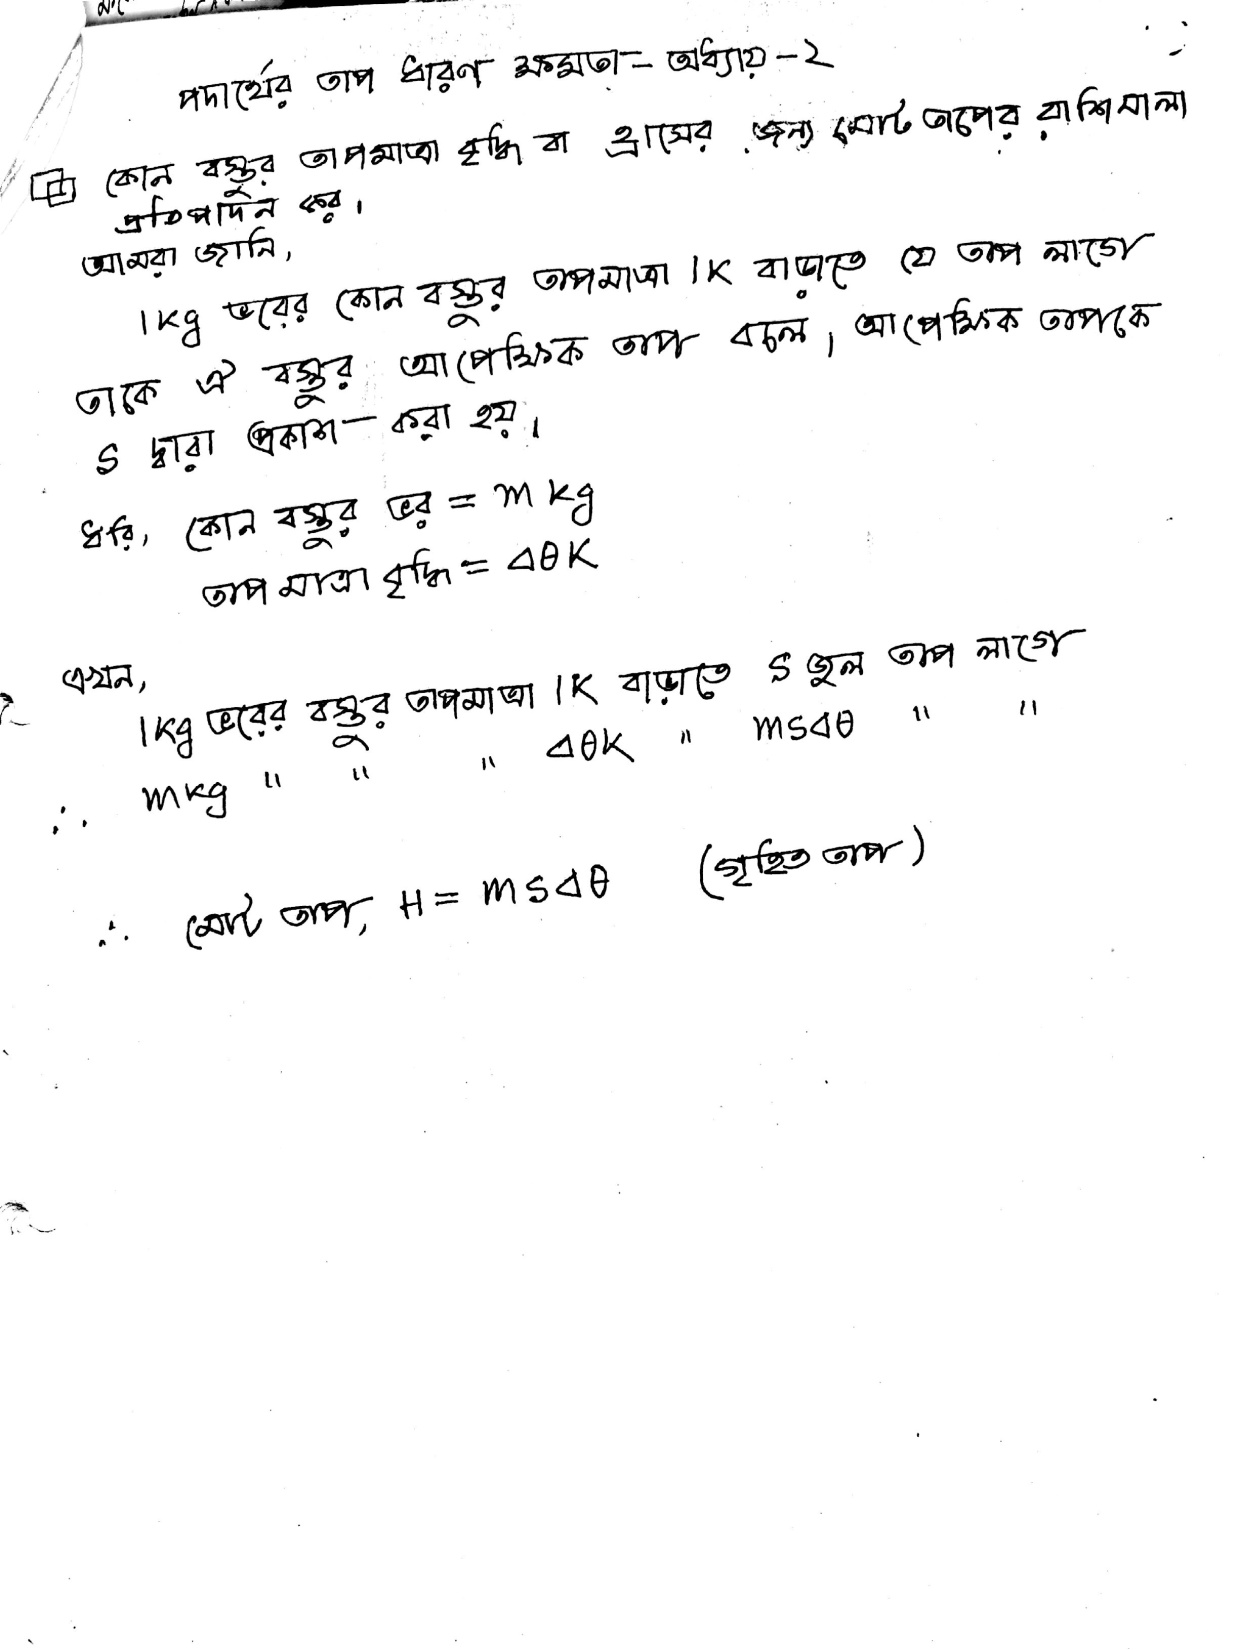 পদার্থের তাপ ধারণ ক্ষমতা - অধ্যায় - ২
কোন বস্তুর তাপমাত্রা বৃদ্ধি বা হ্রাসের জন্য মোট তাপের রাশিমালা
প্রতিপাদন কর।
আমরা জানি,
1 kg ভরের কোন বস্তুর তাপমাত্রা 1K বাড়াতে যে তাপ লাগে
তাকে ঐ বস্তুর আপেক্ষিক তাপ বলে, আপেক্ষিক তাপকে
S দ্বারা প্রকাশ করা হয়।
ধরি, কোন বস্তুর ভর = m kg
তাপ মাত্রা বৃদ্ধি = Δθ K
এখন,
1 kg ভরের বস্তুর তাপমাত্রা 1K বাড়াতে S জুল তাপ লাগে
∴ m kg " " " ΔθK " msΔθ " "
∴ মোট তাপ, H = msΔθ (গৃহিত তাপ)